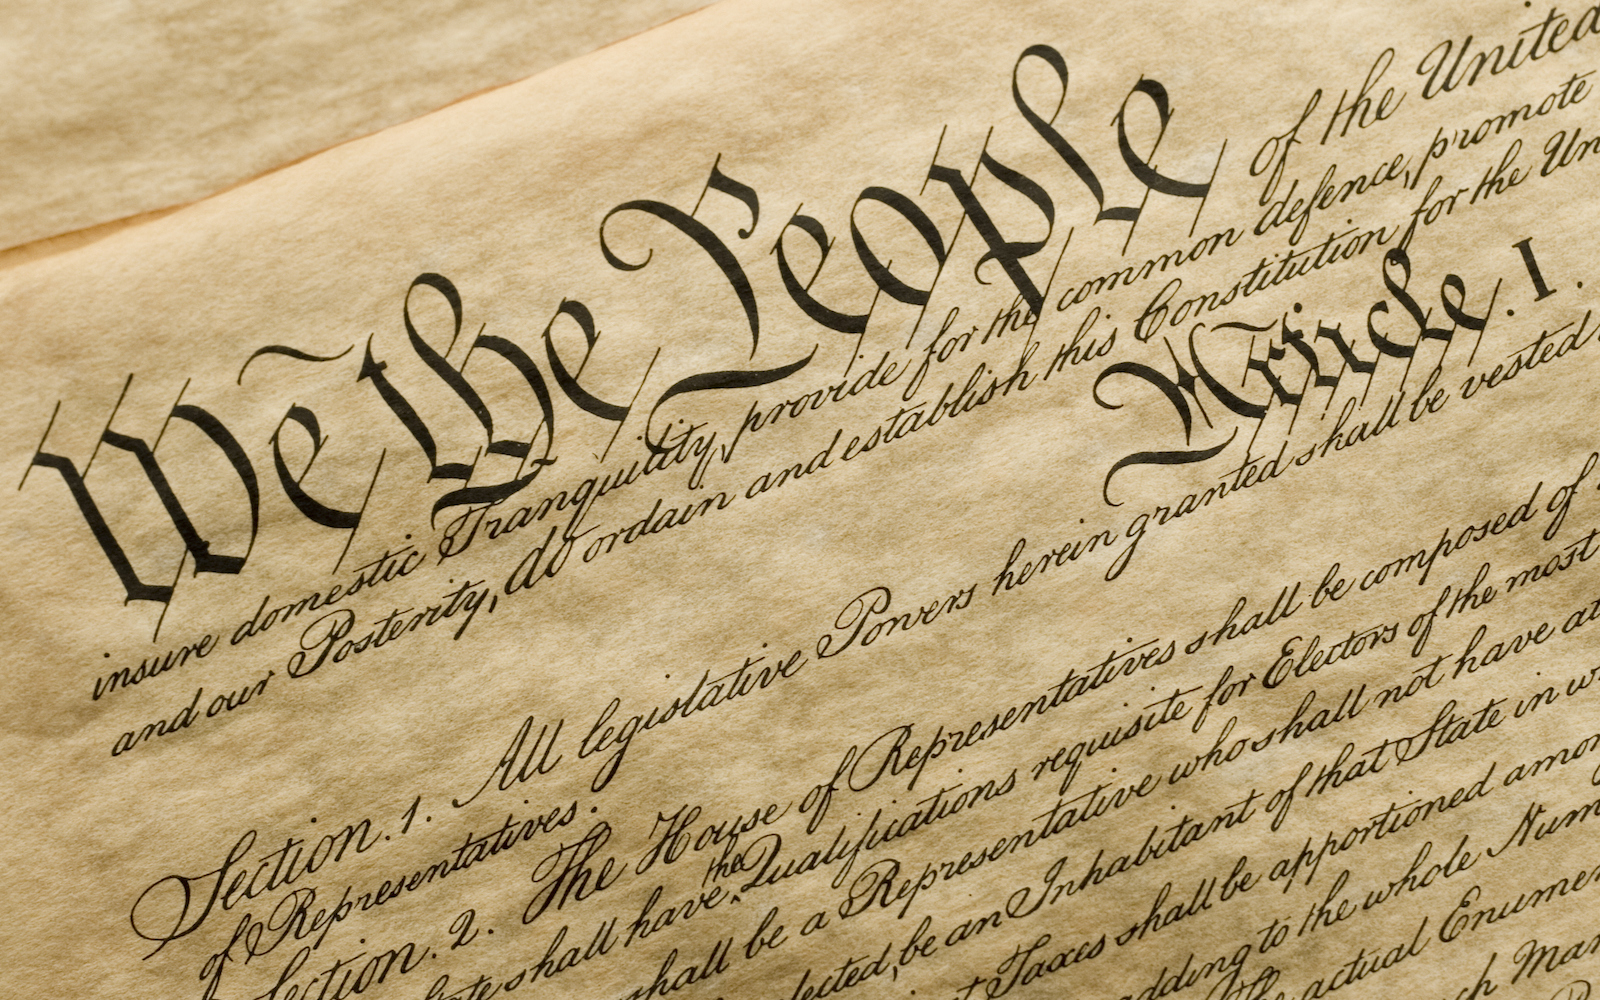 We the People of the United
insure domestic Tranquility, provide for the common defence, promote
and our Posterity, do ordain and establish this Constitution for the Un
Article. I.
Section. 1. All legislative Powers herein granted shall be vested
of Representatives.
Section. 2. The House of Representatives shall be composed of
ate shall have the Qualifications requisite for Electors of the most
shall be a Representative who shall not have at
lected, be an Inhabitant of that State in w
t Taxes shall be apportioned amon
adding to the whole Num
e actual Enumer
ch Man